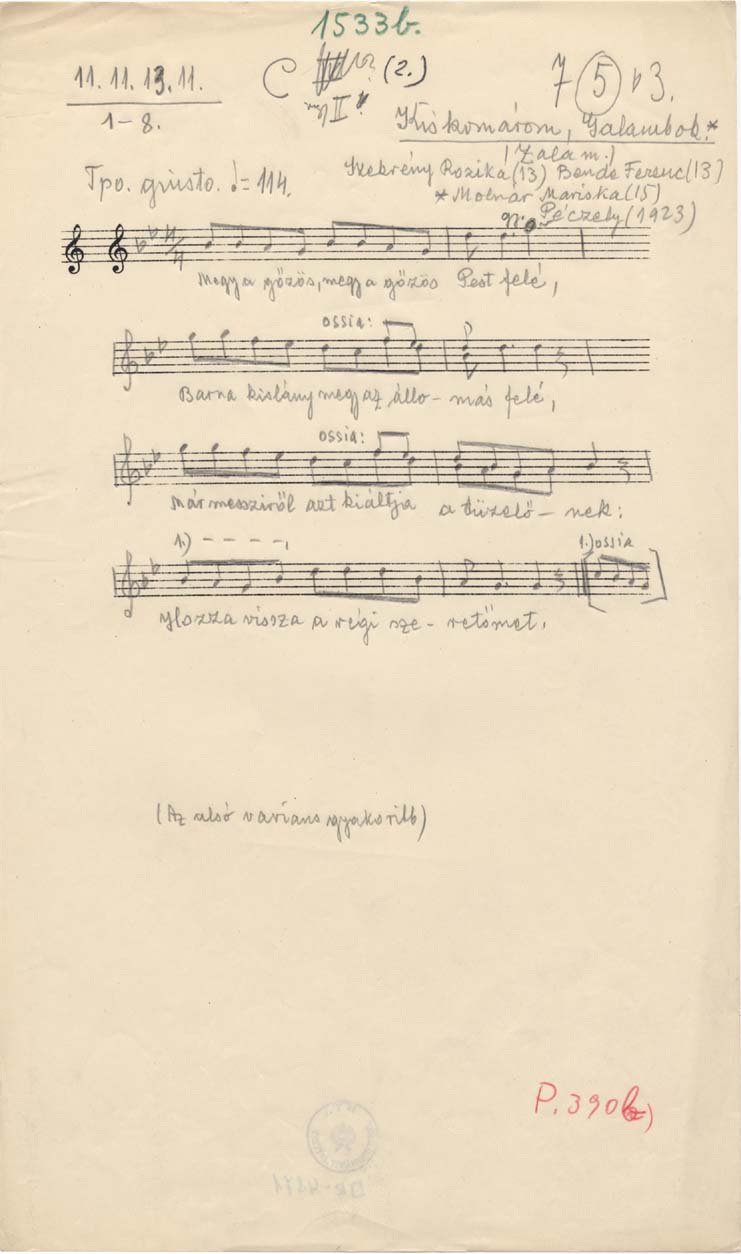 1533b.
11.11.13.11. C (2.) 7 5 b3.
1-8. II
Kiskomárom, Galambok.*
(Zala m.)
Tpo. giusto. ♩= 114. Szekrény Rozika (13) Bende Ferenc (13)
* Molnár Mariska (15)
Péczely (1923)
4/4
Megy a gőzös, megy a gőzös Pest felé,
ossia:
Barna kislány megy az állo- más felé,
ossia:
Már messziről azt kiáltja a tüzelő- nek:
1.) - - - - , 1.) ossia
Hozza vissza a régi sze- retőmet.
(Az alsó variáns gyakoribb)
P. 390b)